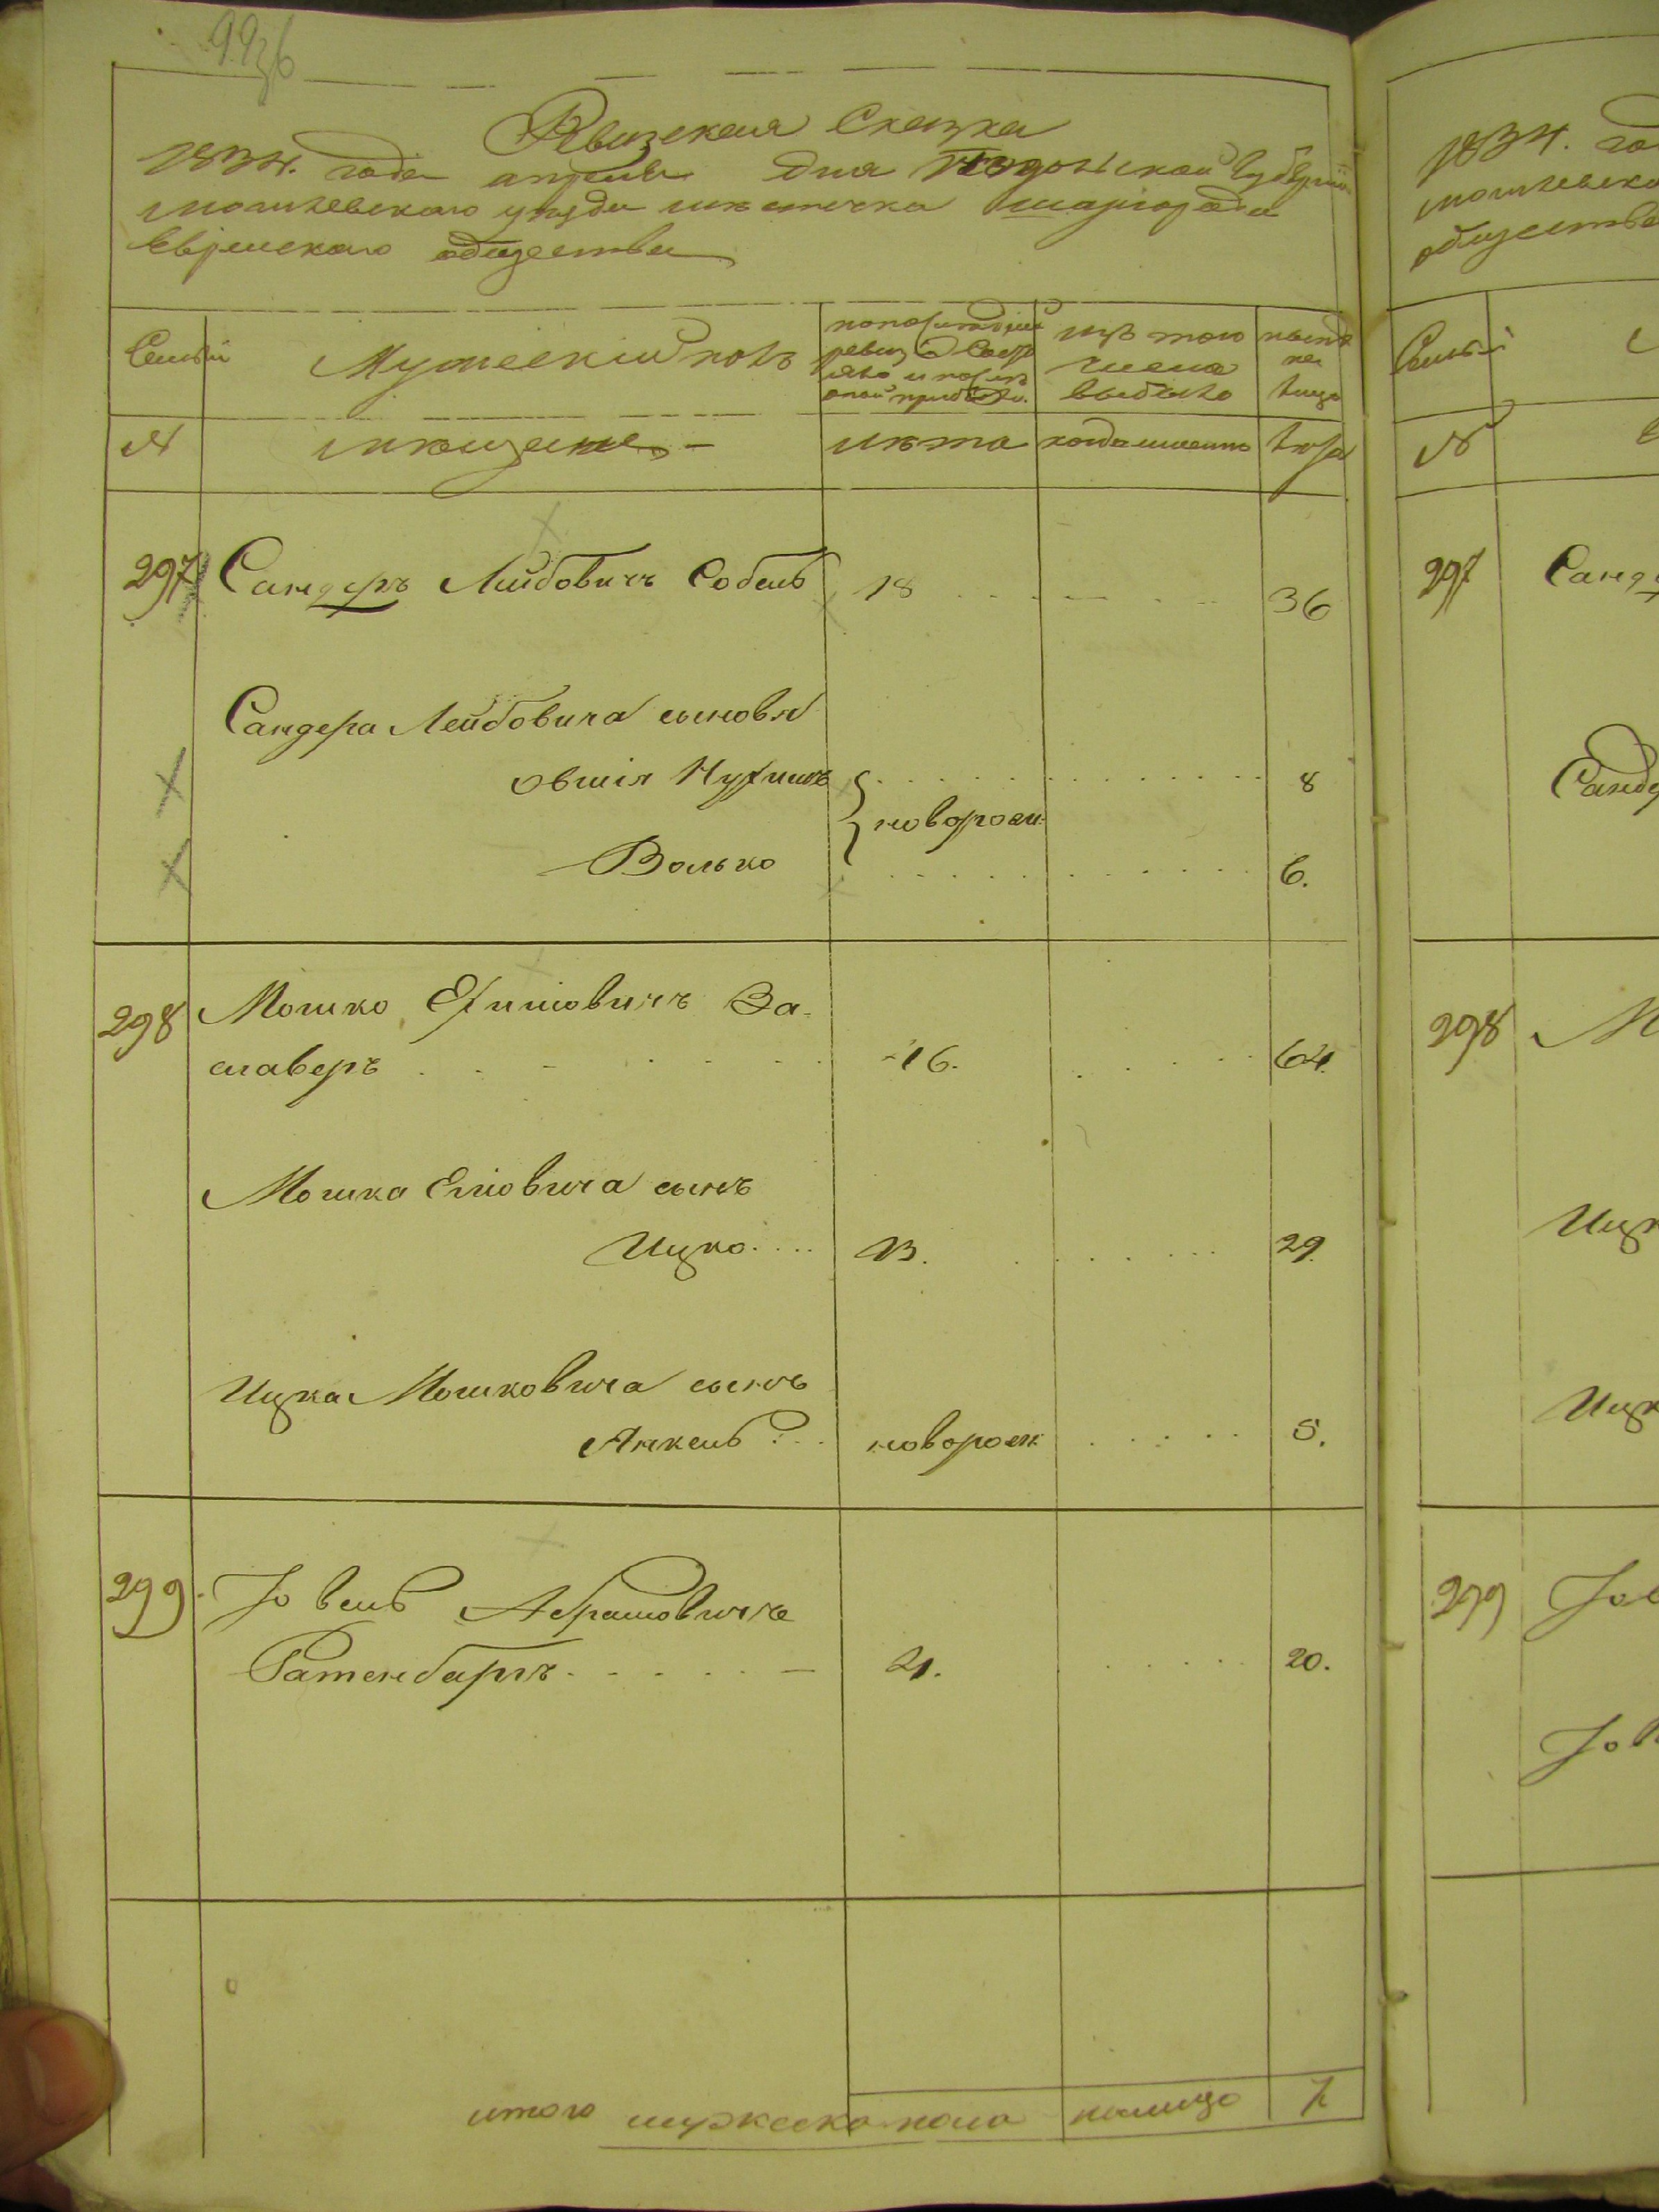 Ревизская Сказка
1834. года апреля дня Подольской Губернiи
могилевского уезда местечка шаргорода
Еврейского общества
Семьи
Мужескiй полъ
по последней
ревизiи состо
яло и после
оной прибыло
изъ того
числа
выбыло
ныне
на
лицо
№
мещане
лета
когда именно
лета
297
Сандеръ Лейбовичъ Собель
18
36
Сандера Лейбовича сыновья
Овшiя Нухимъ
8
новорожн
Волько
6.
298
Мошко Ехимовичъ За-
славеръ
16.
64.
Мошка Ехiовича сынъ
Ицко
13.
29.
Ицка Мошковича сынъ
Янкель
новорожн
5.
299.
Iовель Абрамовичъ
Ратенбаргъ
21.
20.
итого мужеска пола налицо 7
1834. го
могилевско
общества
Семьи
№
297
Санде
Санде
298
М
Ицк
Ицк
299
Iов
Iов